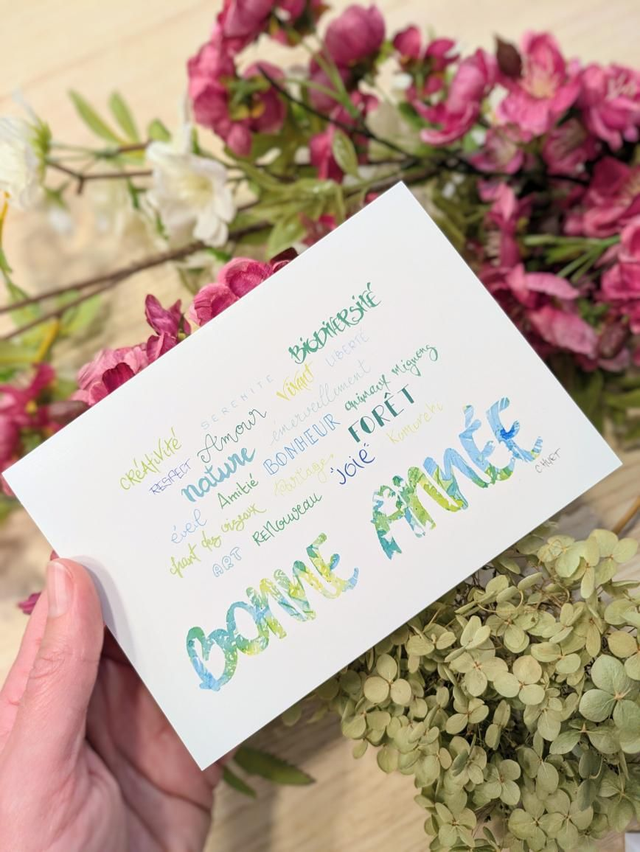 CRÉATIVITÉ SÉRÉNITÉ BIODIVERSITÉ
RESPECT Amour Vivant LIBERTÉ
nature émerveillement animaux mignons
éveil Amitié BONHEUR FORÊT
chant des oiseaux Partage JOIE Komorebi
ART RENOUVEAU
BONNE ANNÉE